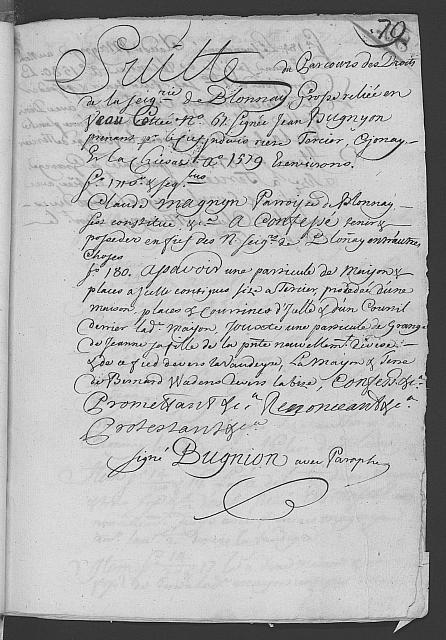 70
Suitte du Parcours des Droits
de la Seig.rie de Blonnay, Grosse reliée en
Veau Cottée N.o 61. Signée Jean Bugnyon
prenant p.r le fief indivis riere Tercier,
& La Chiesaz A.o 1579 & environs.
f.o & seq.tes
Claude Magnyn Parroisse de Blonnay,
s'est constitué &c.a A Confessé tenir &
posseder en fief des N. Seig.rs de Blonay entr'autres
Choses
f.o 180. Assavoir une particule de Mayson &
places à Icelle contigues size à Tercier, procedée d'une
maison, places & Courtines d'Icelle & d'un Courtil
derrier lad.e Mayson, Jouxte une particule de Grange
de Jeanne sa fille de la p.nte nouvellem.t divisée
& de ce fied devers la Vaudeyre, La Mayson & Terre
de Bernard Wadens devers la bize, Confess.t &c.a
Promettant &c.a Renonceant &c.a
Protestant &c.a
signé Bugnion avec Paraphe